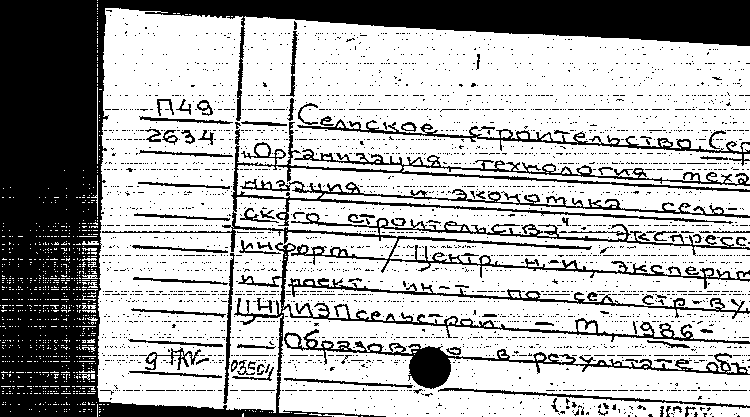 П49
2634
Сельское строительство. Сер
„Организация, технология, меха
низация и экономика сель-
ского строительства": Экспресс
информ. / Центр. н.-и., эксперим
и проект. ин-т по сел. стр-ву.
ЦНИИЭПсельстрой. – М., 1986-
03504 Образовано в результате объ